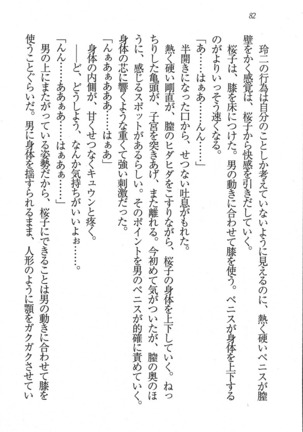 82
玲二の行為は自分のことしか考えていないように見えるのに、熱く硬いペニスが膣
壁をかく感覚は、桜子から快感を引きだしていく。
桜子は、膝を床につけた。男の動きに合わせて膝を使う。ペニスが身体を上下する
のがよりいっそう速くなる。
「あ……はぁ……んっ……」
半開きになった口から、せつない吐息がもれた。
熱く硬い剛直が、膣のヒダヒダをこすりながら、桜子の身体を上下していく。ねっ
ちりした亀頭が、子宮を突きあげ、また離れる。今初めて気がついたが、膣の奥のほ
うに、感じるスポットがあるらしい。そのポイントを男のペニスが的確に責めていく。
身体の芯に響くような重くて強い刺激だった。
「あっ……はぁあぁ……はぁあ」
身体の内側が、甘くせつなくキュウンと疼く。
――ど、どうしよう、なんか気持ちがいいよぉ……。
「んん……ああぁあ……はぁぁぁ」
男の上にまたがっている姿勢だから、桜子にできることは男の動きに合わせて膝を
使うことぐらいだ。男に身体を揺すられるまま、人形のように顎をガクガクさせてい